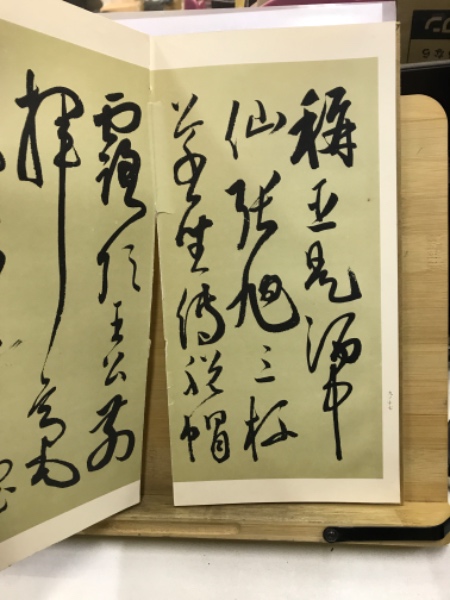 稱臣是酒中
仙張旭三杯
草聖傳脫帽
露頂王公前
揮毫